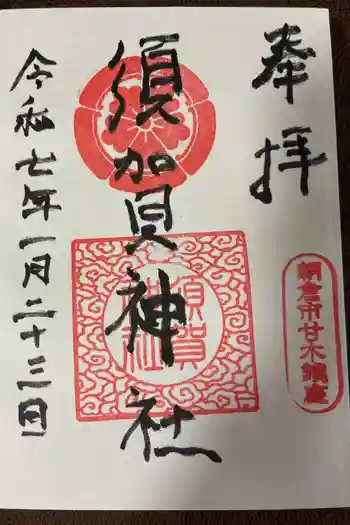 奉拝
朝倉市甘木鎮座
須加貝神社
須賀
神社
令和七年一月二十三日